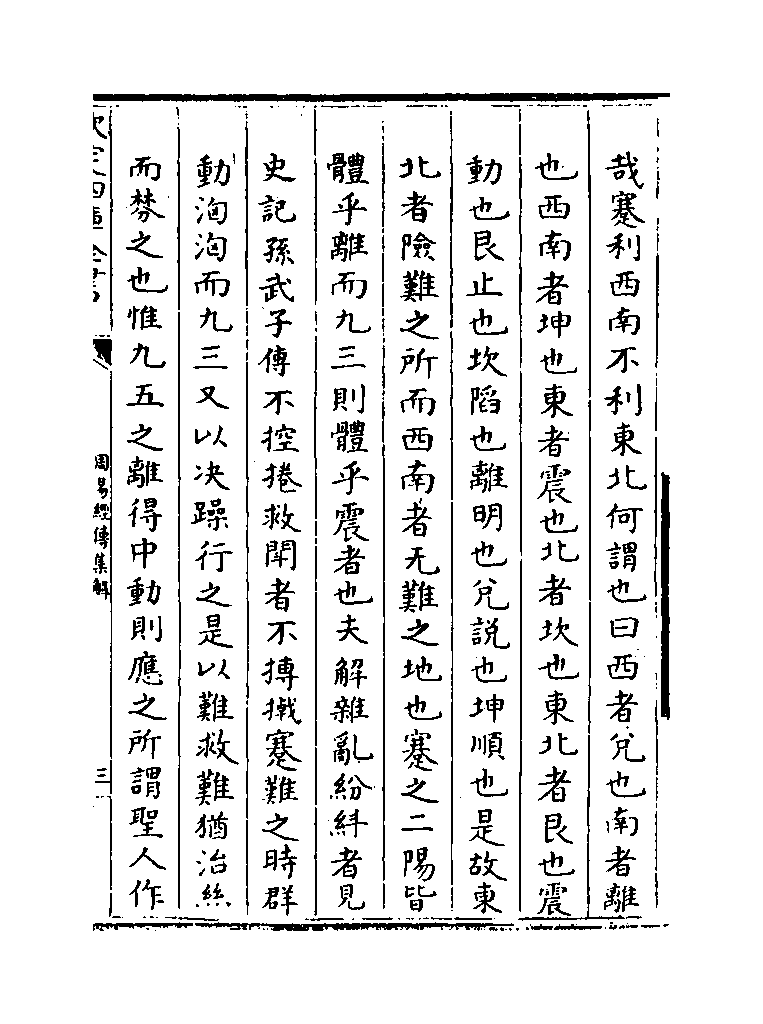 哉蹇利西南不利東北何謂也曰西者兌也南者離
也西南者坤也東者震也北者坎也東北者艮也震
動也艮止也坎陷也離明也兌說也坤順也是故東
北者險難之所而西南者无難之地也蹇之二陽皆
體乎離而九三則體乎震者也夫解雜亂紛糾者見
史記孫武子傳不控捲救鬭者不搏撠蹇難之時群
動洶洶而九三又以决躁行之是以難救難猶治絲
而棼之也惟九五之離得中動則應之所謂聖人作
欽定四庫全書
周易經傳集解
三